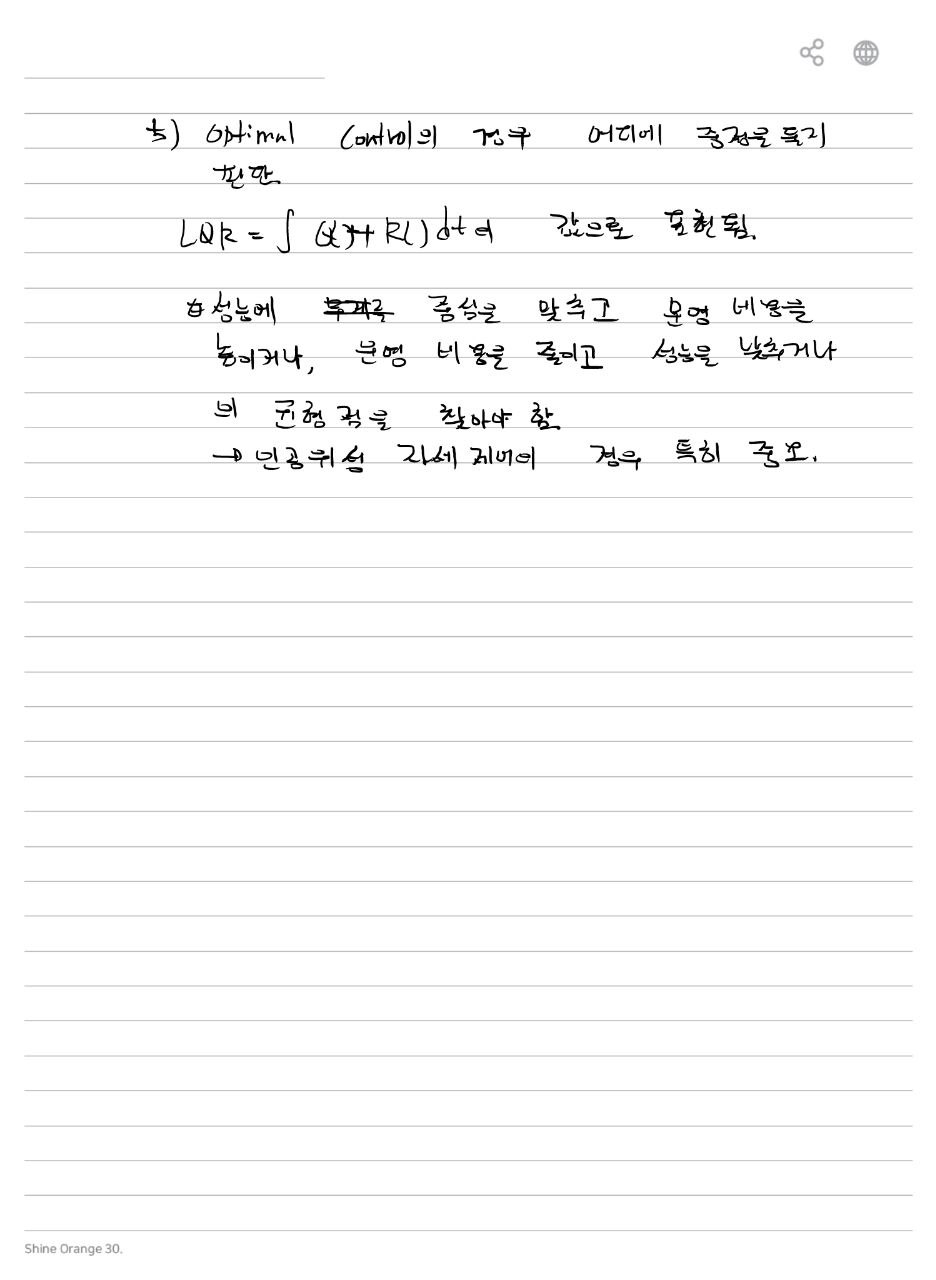 5) Optimal Control의 경우 어디에 중점을 둘지
판단
LQR = ∫ (Q( )+ R( ) dt의 값으로 표현됨.
성능에 중심을 맞추고 운영 비용을
높이거나, 운영 비용을 줄이고 성능을 낮추거나
의 균형점을 찾아야 함.
→ 인공위성 자세 제어의 경우 특히 중요.
Shine Orange 30.